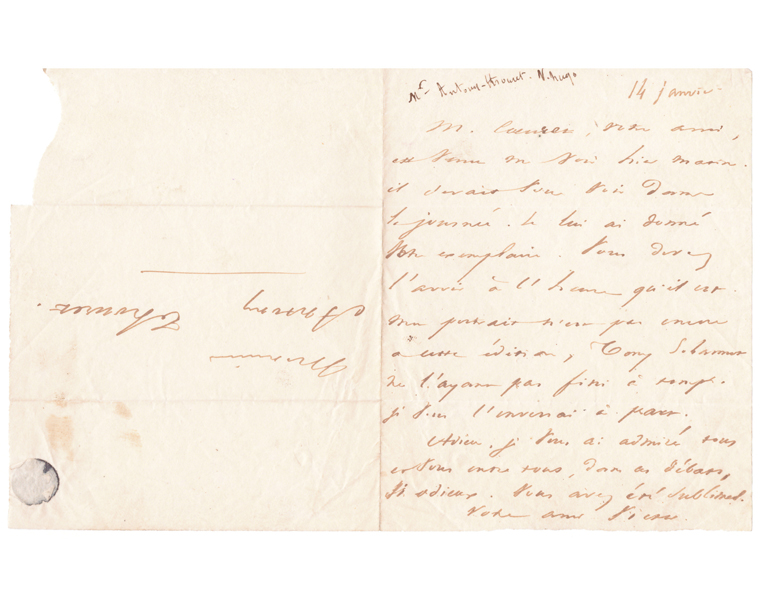 Mr Antony-Thouret. V. hugo
14 janvier
M. Cauzen, votre ami,
est venu me voir hier matin.
il devait vous voir dans
la journée. Je lui ai donné
votre exemplaire. Vous devez
l'avoir à l'heure qu'il est.
mon portrait n'est pas encore
à cette édition, Tony
ne l'ayant pas fini à temps.
je vous l'enverrai à part.
Adieu. je vous ai admiré tous
et vous entre tous, dans ces débats,
si odieux. Vous avez été sublimes.
Votre ami
Monsieur
Antony
Thouret.